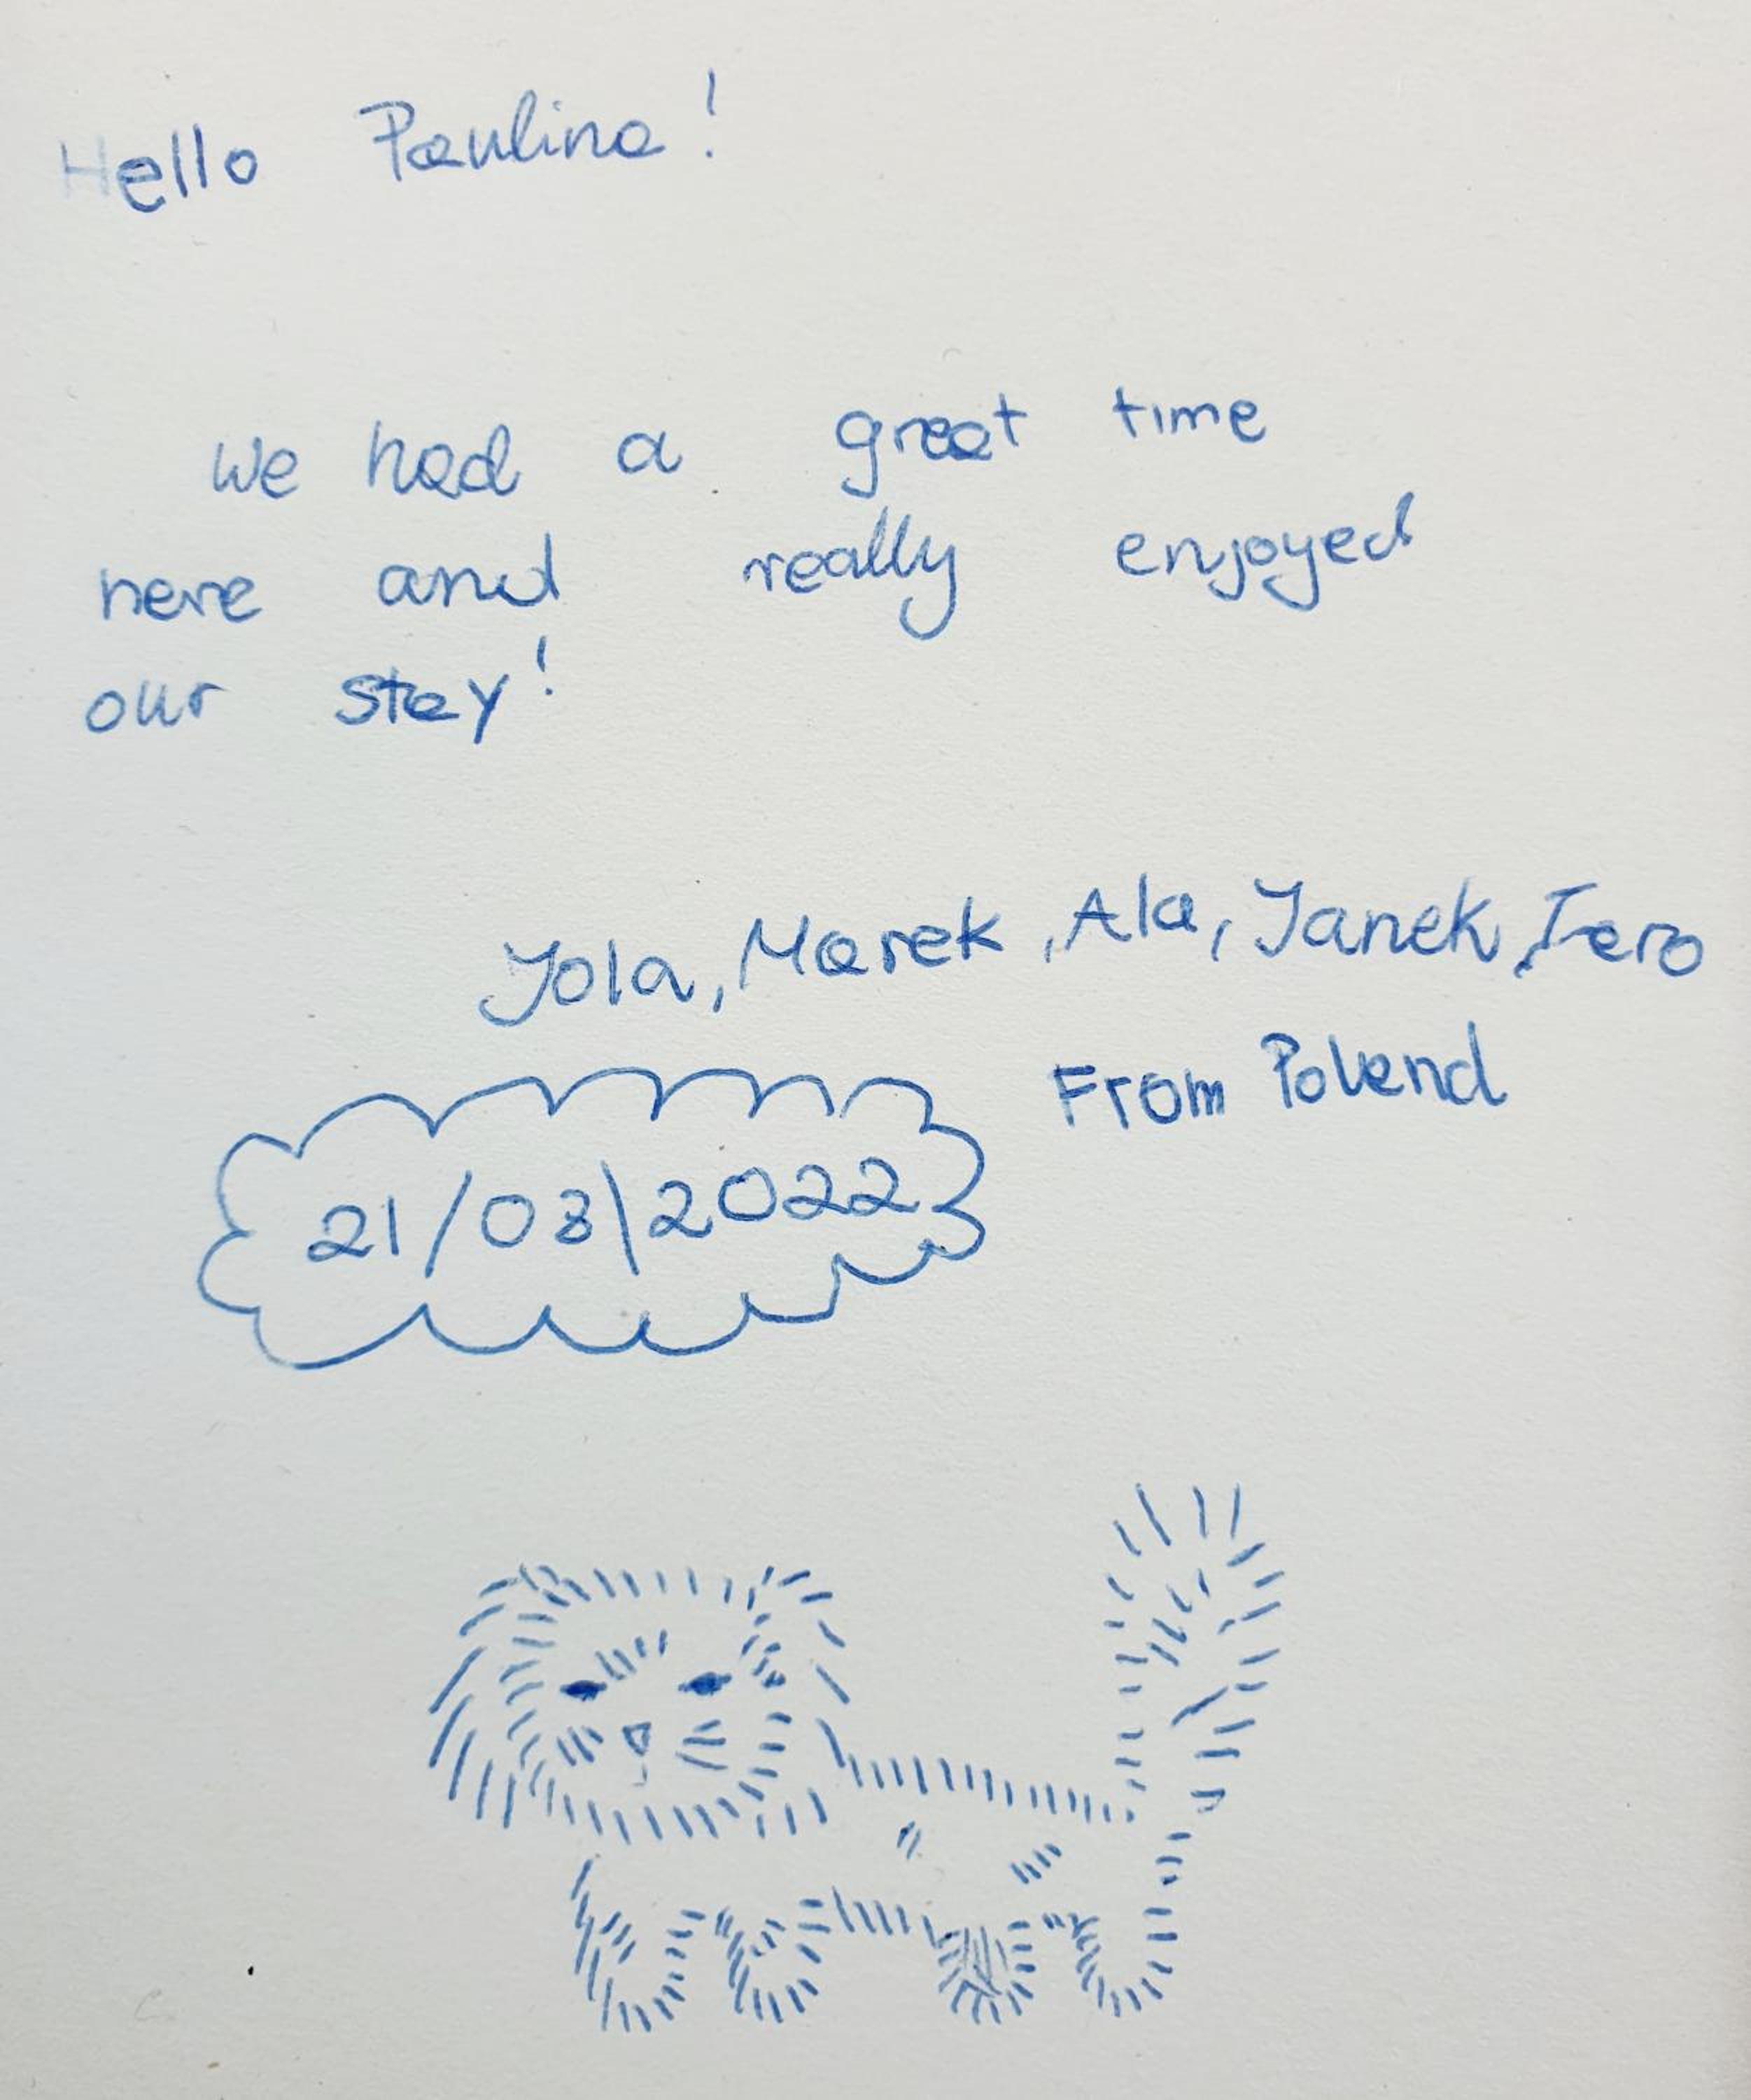 Hello Paulina!
we had a great time
here and really enjoyed
our stay!
Jola, Marek, Ala, Janek,
From Poland
21/08\2022